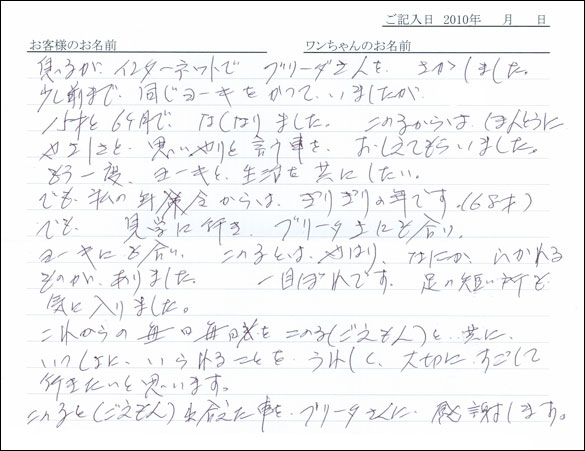 ご記入日 2010年 月 日
お客様のお名前 ワンちゃんのお名前
息子が、インターネットで ブリーダさんを、さがしました。
少し前まで、同じヨーキをかって、いましたが、
15才と6ヶ月で、なくなりました。このこからは、ほんとうに
やさしさと、思いやりと言う事を、おしえてもらいました。
もう一度、ヨーキと、生活を共にしたい。
でも、私の年令からは、ぎりぎりの年です。(68才)
でも、見学に行き、ブリーダさんにも合い、
ヨーキにも合い、このことは、やはり、なにか、ひかれる
ものが、ありました。一目ぼれです。足の短い所も
気に入りました。
これからの毎日毎日をこのこ(ごえもん)と共に、
いっしょに、いられることを、うれしく、大切に、すごして
行きたいと思います。
このこと(ごえもん)出合えた事を、ブリーダさんに、感謝します。